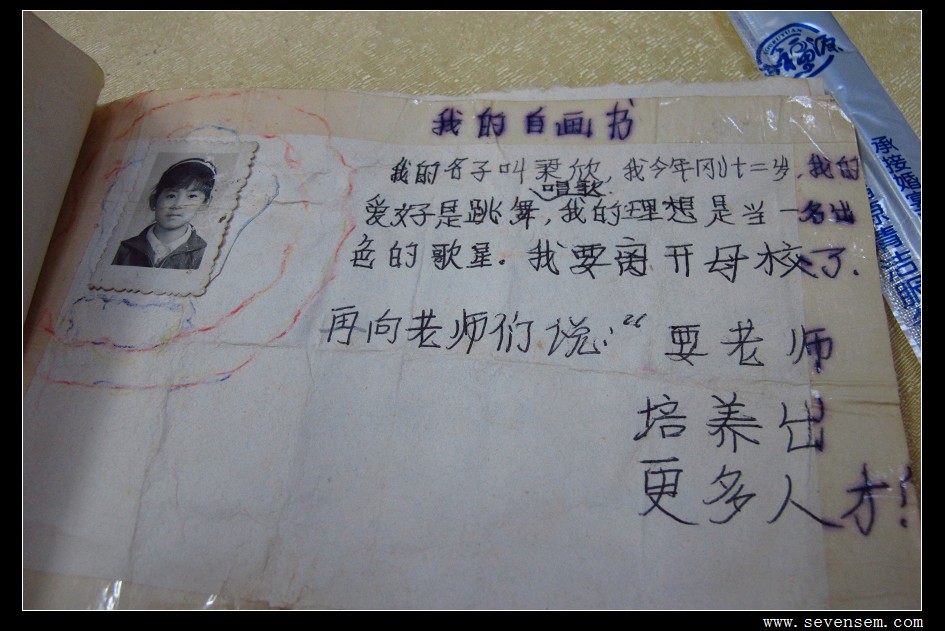 我的自画书
我的名子叫梁欣,我今年刚十二岁,我的
唱歌
爱好是跳舞,我的理想是当一名出
色的歌星。我要离开母校了.
再向老师们说:“要老师
培养出
更多人才!
源
承接婚
www.sevensem.com